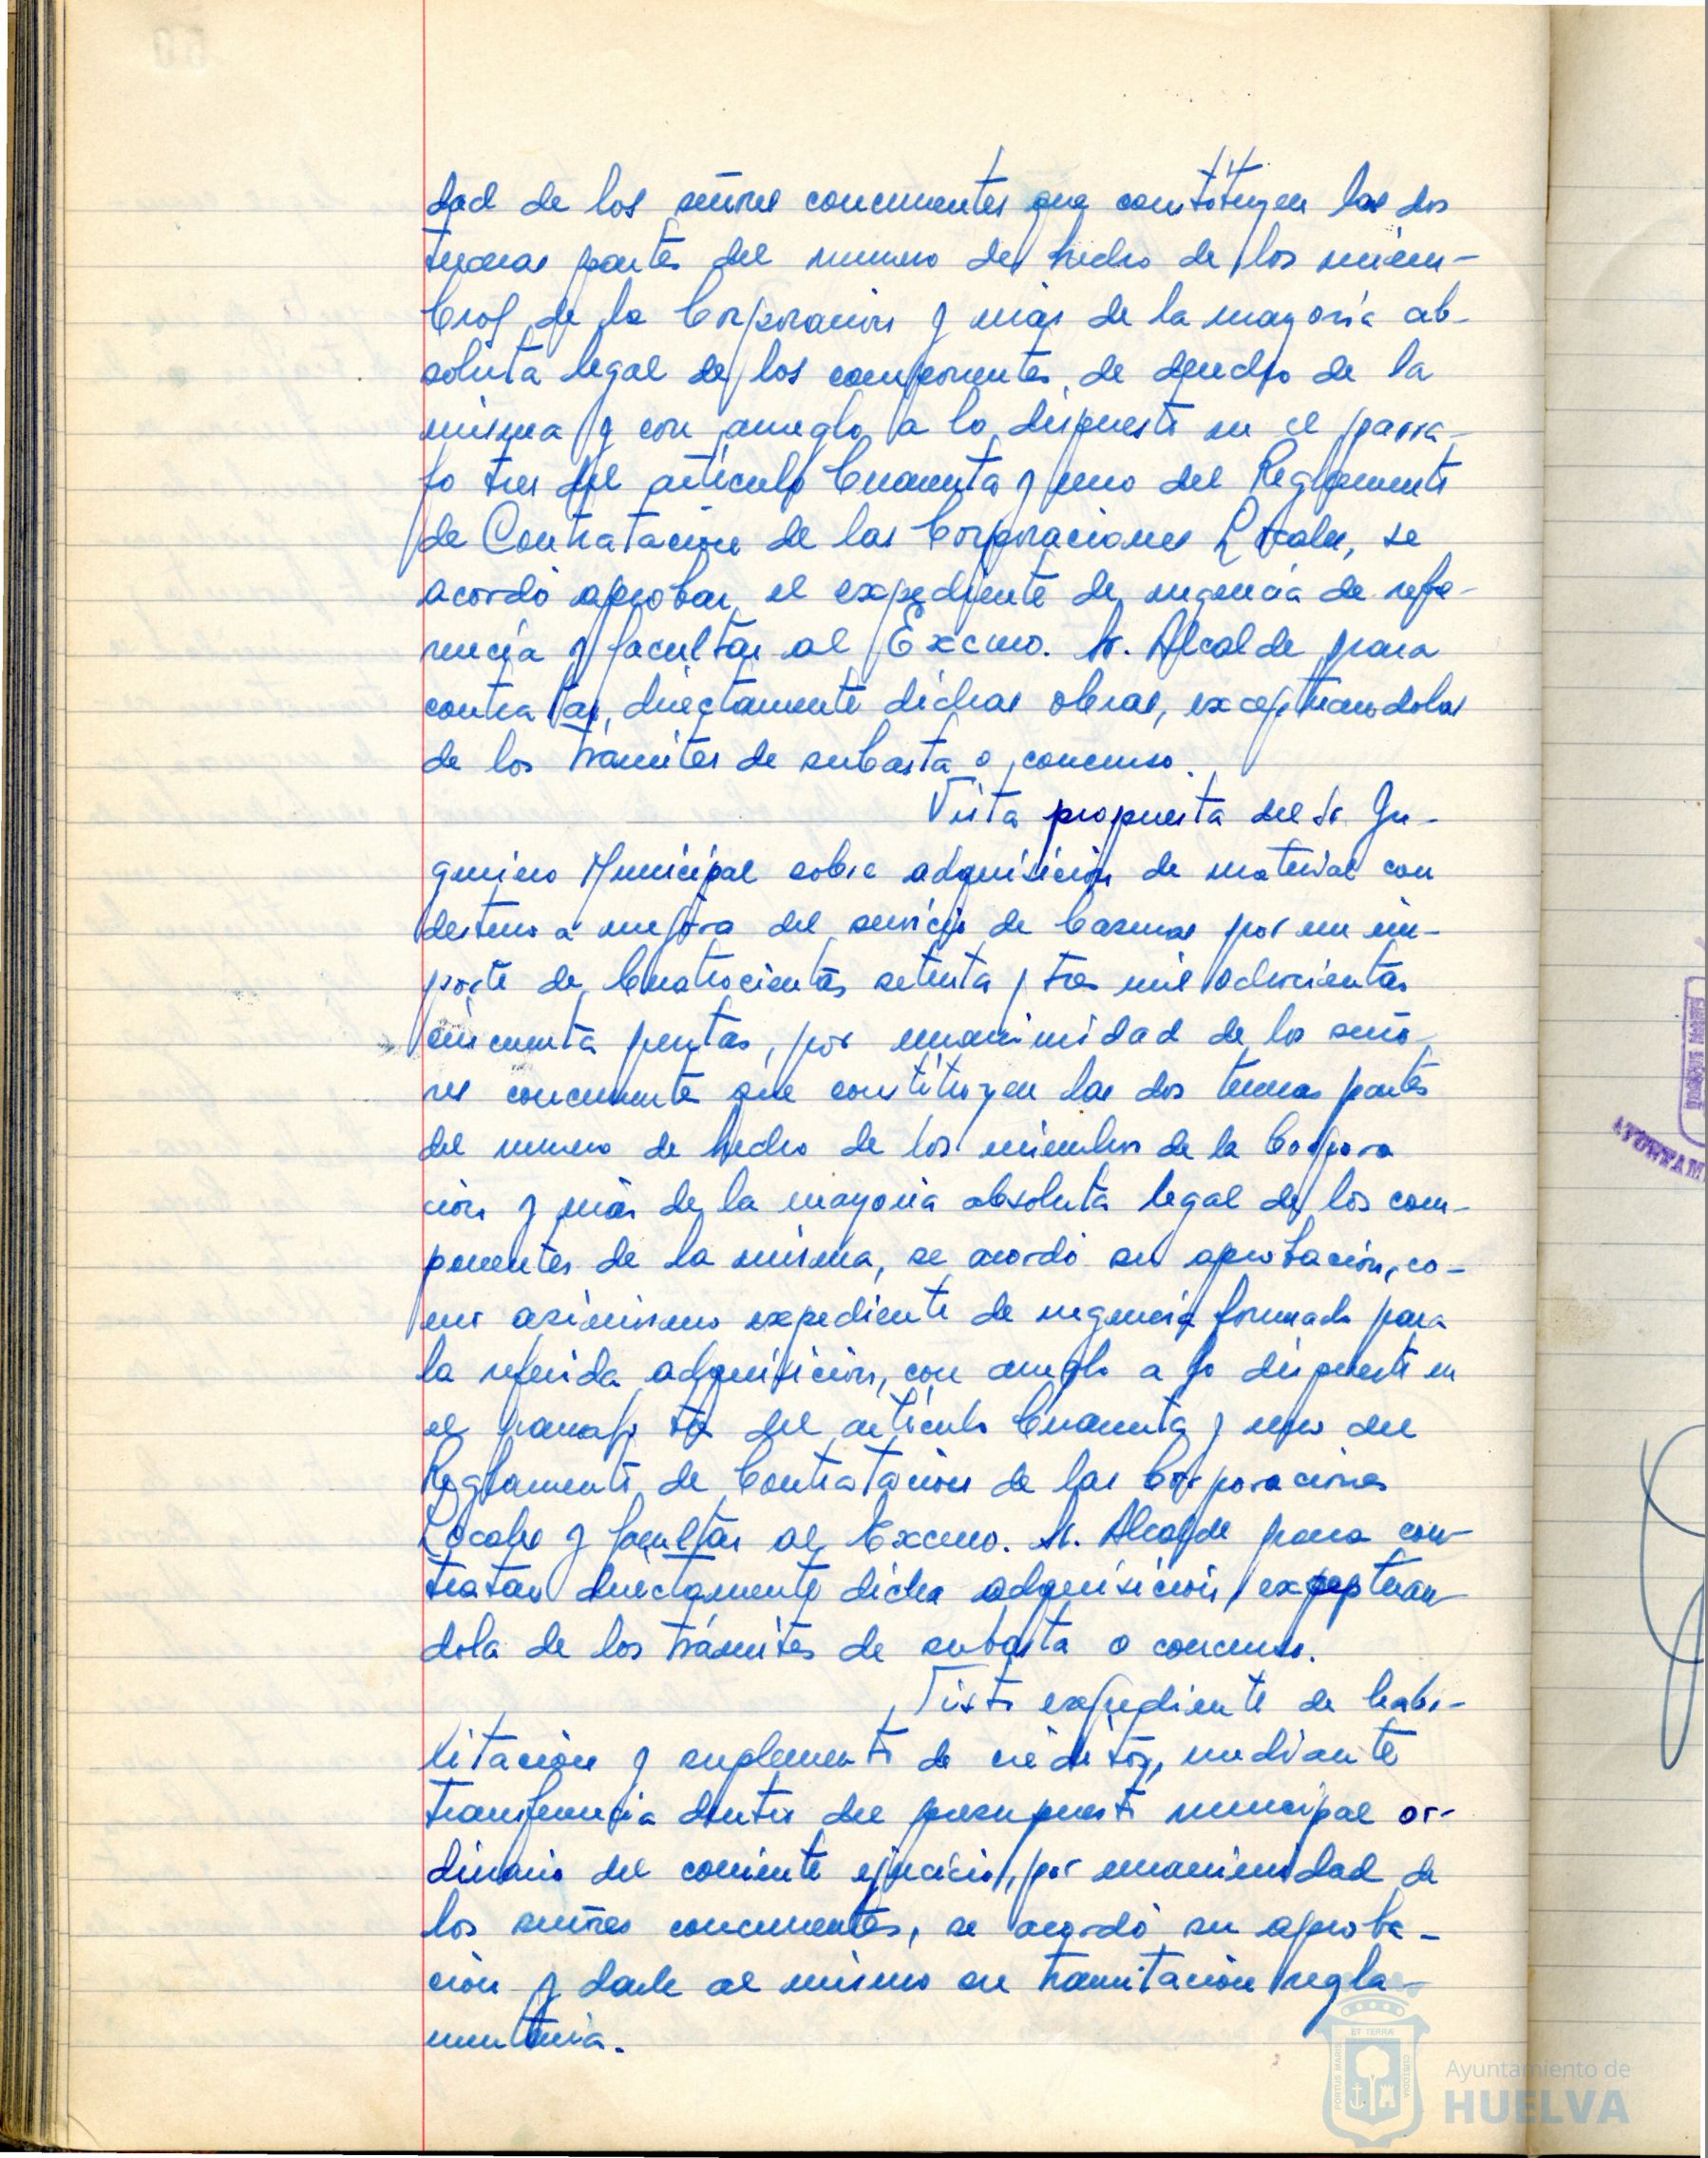 dad de los señores concurrentes que constituyen las dos
terceras partes del numero de hecho de los miem-
bros de la Corporación y más de la mayoría ab-
soluta legal de los componentes de derecho de la
misma y con arreglo a lo dispuesto en el parra-
fo tres del artículo Cuarenta y uno del Reglamento
de Contratación de las Corporaciones Locales, se
acordó aprobar el expediente de urgencia de refe-
rencia y facultar al Excmo. Sr. Alcalde para
contratar directamente dichas obras, exceptuandolas
de los trámites de subasta o concurso.
Vista propuesta del Sr. In-
geniero Municipal sobre adquisición de material con
destino a mejora del servicio de por un im-
porte de Cuatrocientas setenta y tres mil ochocientas
cincuenta pesetas, por unanimidad de los seño-
res concurrente que constituyen las dos terceras partes
del numero de hecho de los miembros de la Corpora
ción y más de la mayoria absoluta legal de los com-
ponentes de la misma, se acordó su aprobación, co-
mo asimismo expediente de urgencia formado para
la referida adquisición, con arreglo a lo dispuesto en
el parrafo tres del artículo Cuarenta y uno del
Reglamento de Contratación de las Corporaciones
Locales y facultar al Excmo. Sr. Alcalde para con-
tratar directamente dicha adquisición, exceptuan-
dola de los trámites de subasta o concurso.
Visto expediente de habi-
litación y suplemento de créditos, mediante
transferencia dentro del presupuesto municipal or-
dinario del corriente ejercicio, por unanimidad de
los señores concurrentes, se acordó su aproba-
ción y darle al mismo su tramitación regla-
mentaria.
ET TERRAE
PORTUS MARIS
CUSTODIA
Ayuntamiento de
HUELVA